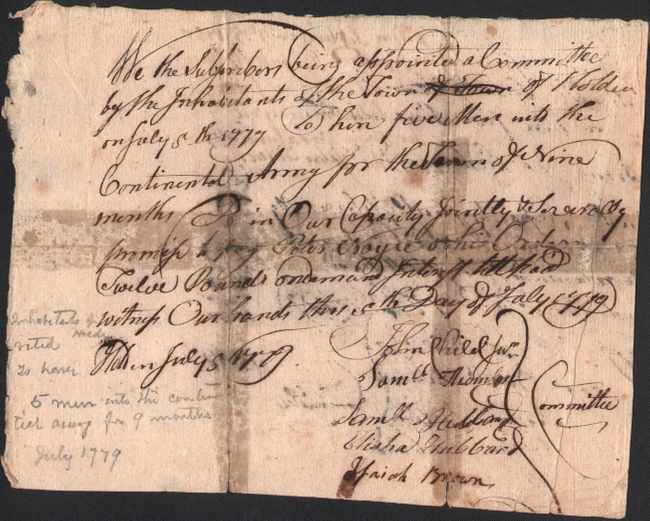 We the Subscribers being appointed a Committee
by the Inhabitants of the Town of Town of Holden
on July 5th 1779 To hire five Men into the
Continental Army for the Term of Nine
months Do in Our Capacity Jointly & Severally
promis to pay Peter or his Order
Twelve Pounds on demand Interest till paid
witness Our hands this 5th Day of July 1779
Holden July 5 1779
John Child Junr
Samll Thompson
Samll Hubbard
Elisha Hubbard
Isaiah Brown
Committee
Inhabitants of
voted
to have
5 men into the contin
tial army for 9 months
July 1779